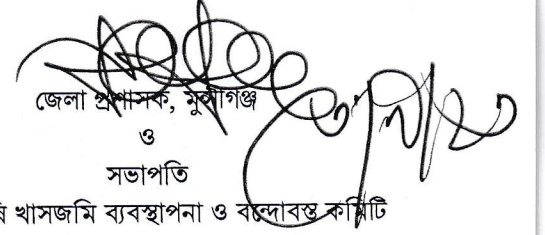 জেলা প্রশাসক, মুন্সীগঞ্জ
ও
সভাপতি
খাসজমি ব্যবস্থাপনা ও বন্দোবস্ত কমিটি